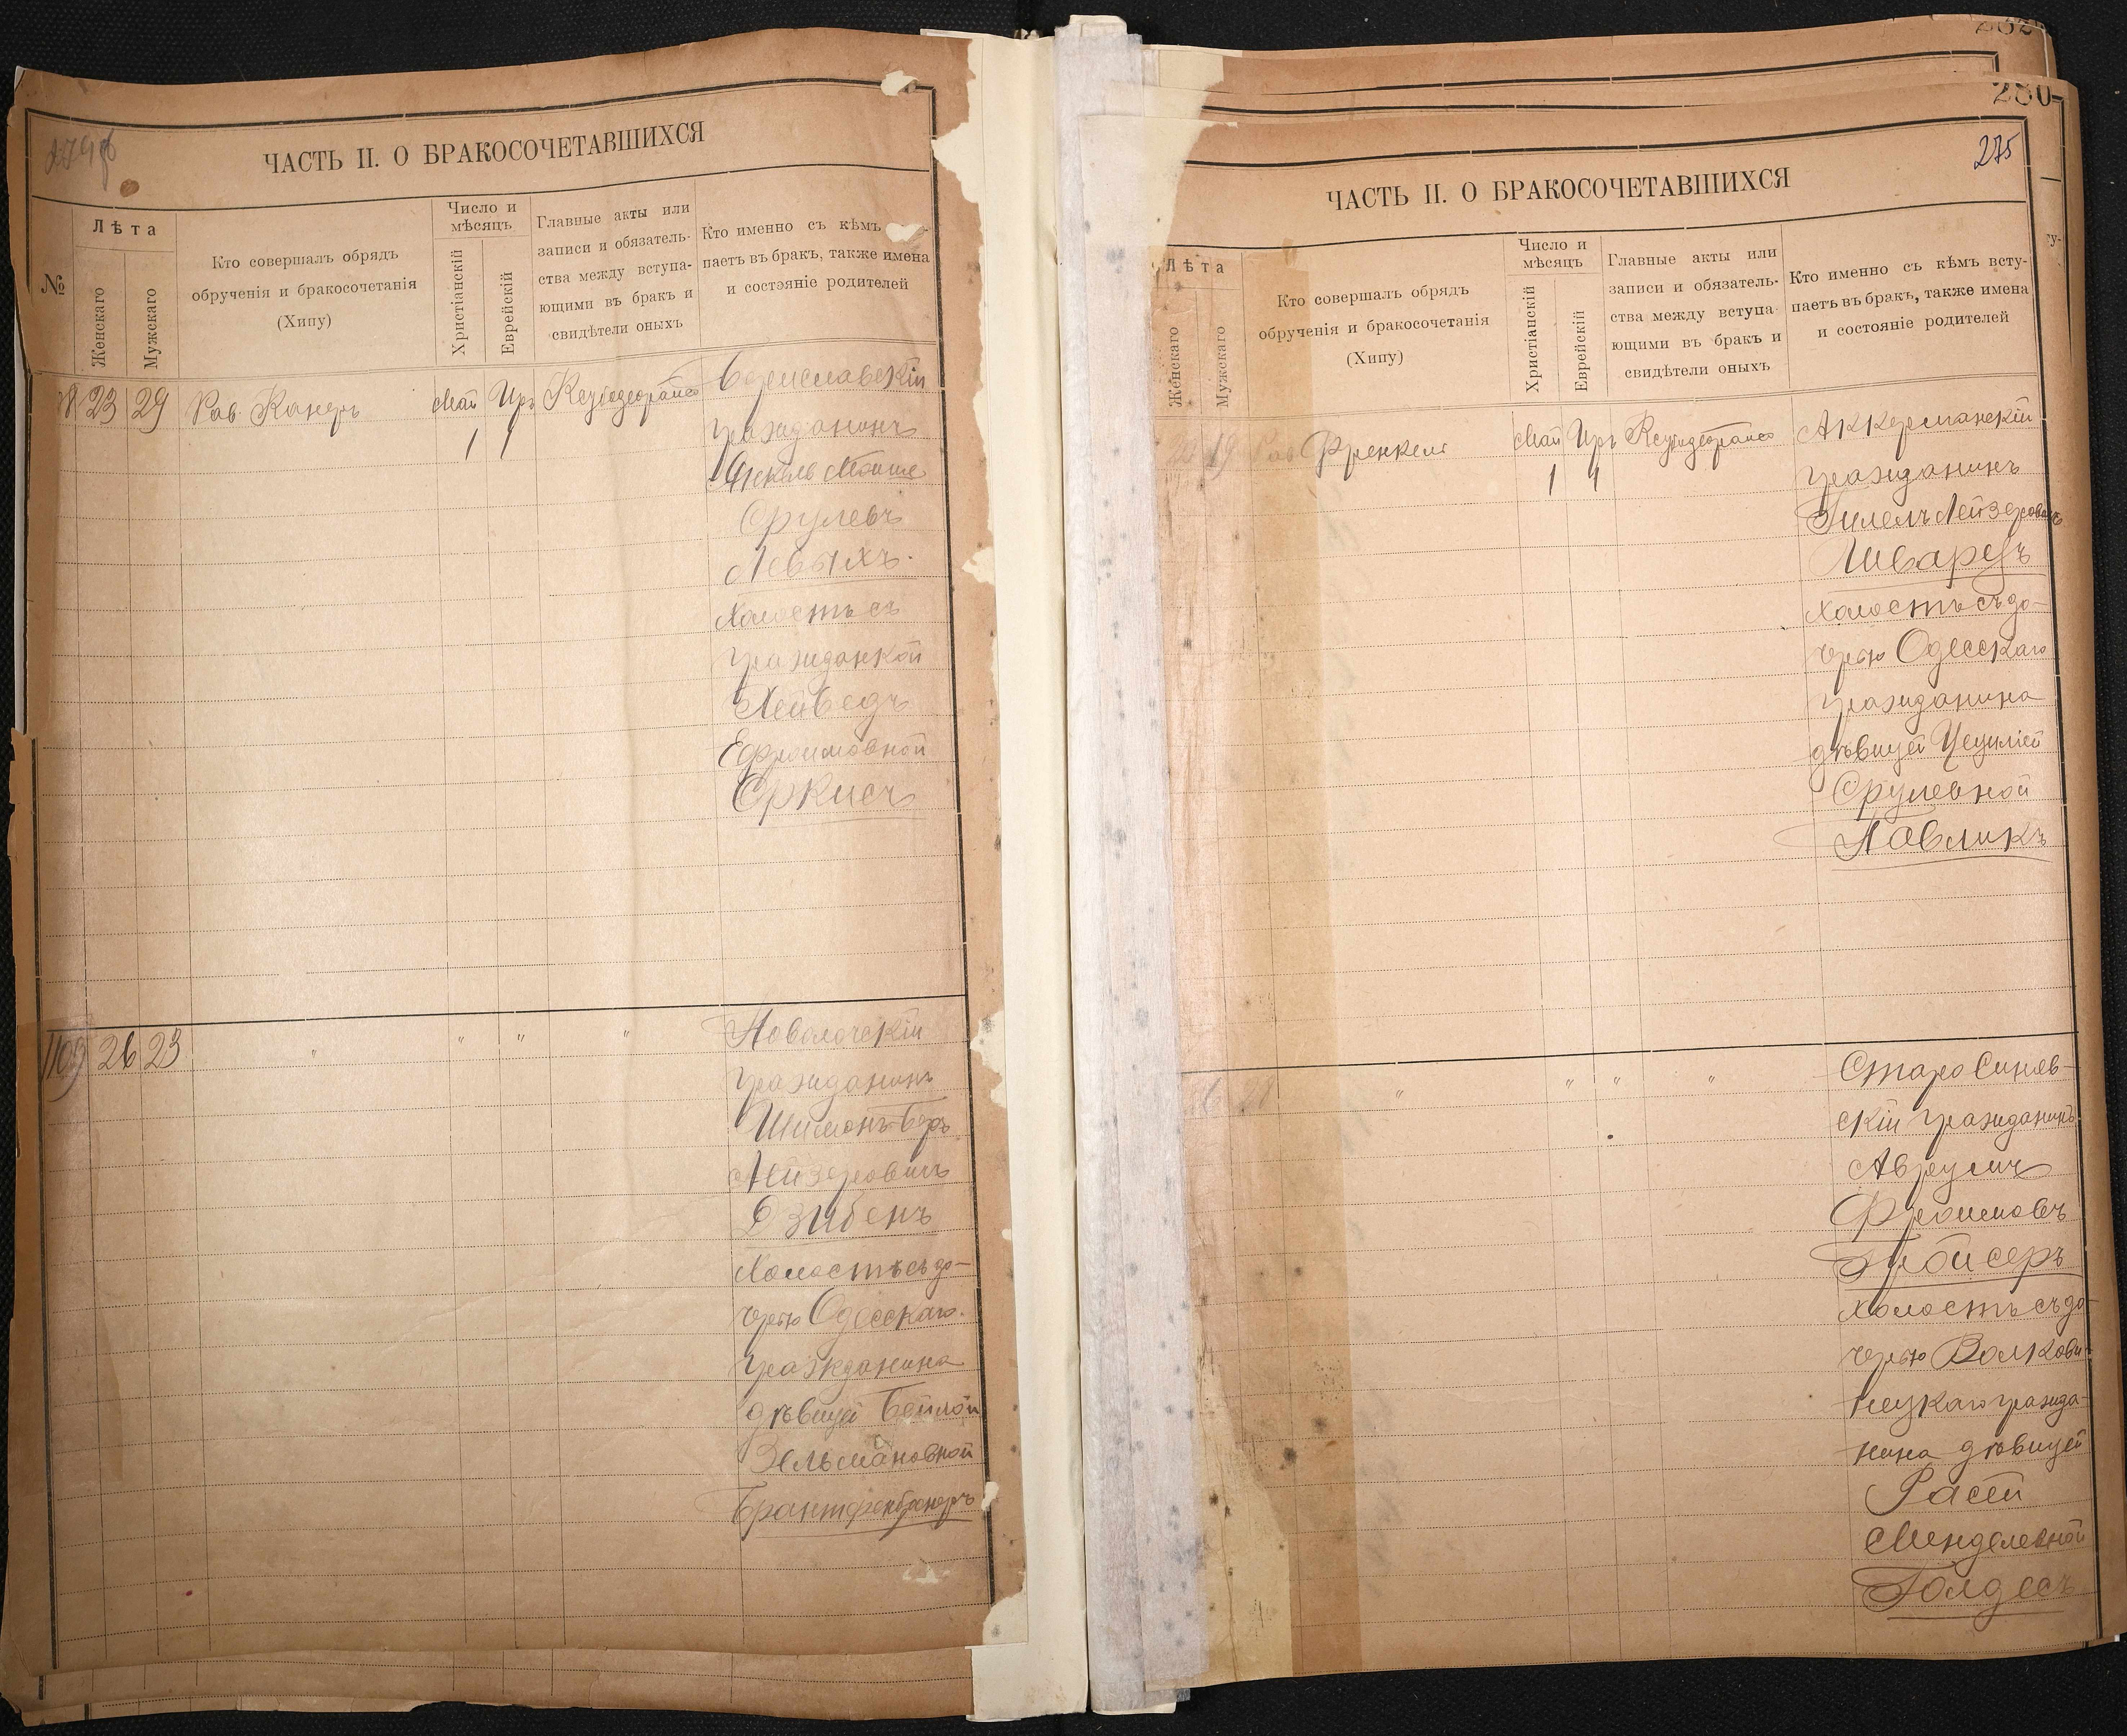 ЧАСТЬ II. О БРАКОСОЧЕТАВШИХСЯ
№
Лѣта
Женскаго
Мужскаго
Кто совершалъ обрядъ
обрученія и бракосочетанія
(Хипу)
Число и
мѣсяцъ
Христіанскій
Еврейскій
Главные акты или
записи и обязатель-
ства между вступа-
ющими въ бракъ и
свидѣтели оныхъ
Кто именно съ кѣмъ
паетъ въ бракъ, также имена
и состояніе родителей
23 29 Рав. Канеръ Май Иръ
1 1
Бориславскій
гражданинъ
Мойше
Срулевъ
холостъ съ
гражданкой
Ефроимовной
Еркисъ
1109 26 23 " " " "
гражданинъ
Шимонъ-Беръ
Лейзеровичъ
Дзибенъ
холостъ съ до-
черью Одесскаго
гражданина
дѣвицей Бейлой
Зельмановной
275
ЧАСТЬ II. О БРАКОСОЧЕТАВШИХСЯ
Лѣта
Женскаго
Мужскаго
Кто совершалъ обрядъ
обрученія и бракосочетанія
(Хипу)
Число и
мѣсяцъ
Христіанскій
Еврейскій
Главные акты или
записи и обязатель-
ства между вступа-
ющими въ бракъ и
свидѣтели оныхъ
Кто именно съ кѣмъ всту-
паетъ въ бракъ, также имена
и состояніе родителей
19 Рав Френкель Май Иръ
1 1
Аккерманскій
гражданинъ
Гилель Лейзеровъ
Шварцъ
холостъ съ до-
черью Одесскаго
гражданина
дѣвицей Цециліей
Срулевной
Павликъ
" " " "
Старо Синяв-
скій гражданинъ
Аврумъ
Фроимовъ
холостъ съ до-
черью Волкови-
нецкаго гражда-
нина дѣвицей
Расей
Менделевной
Голдесъ
280